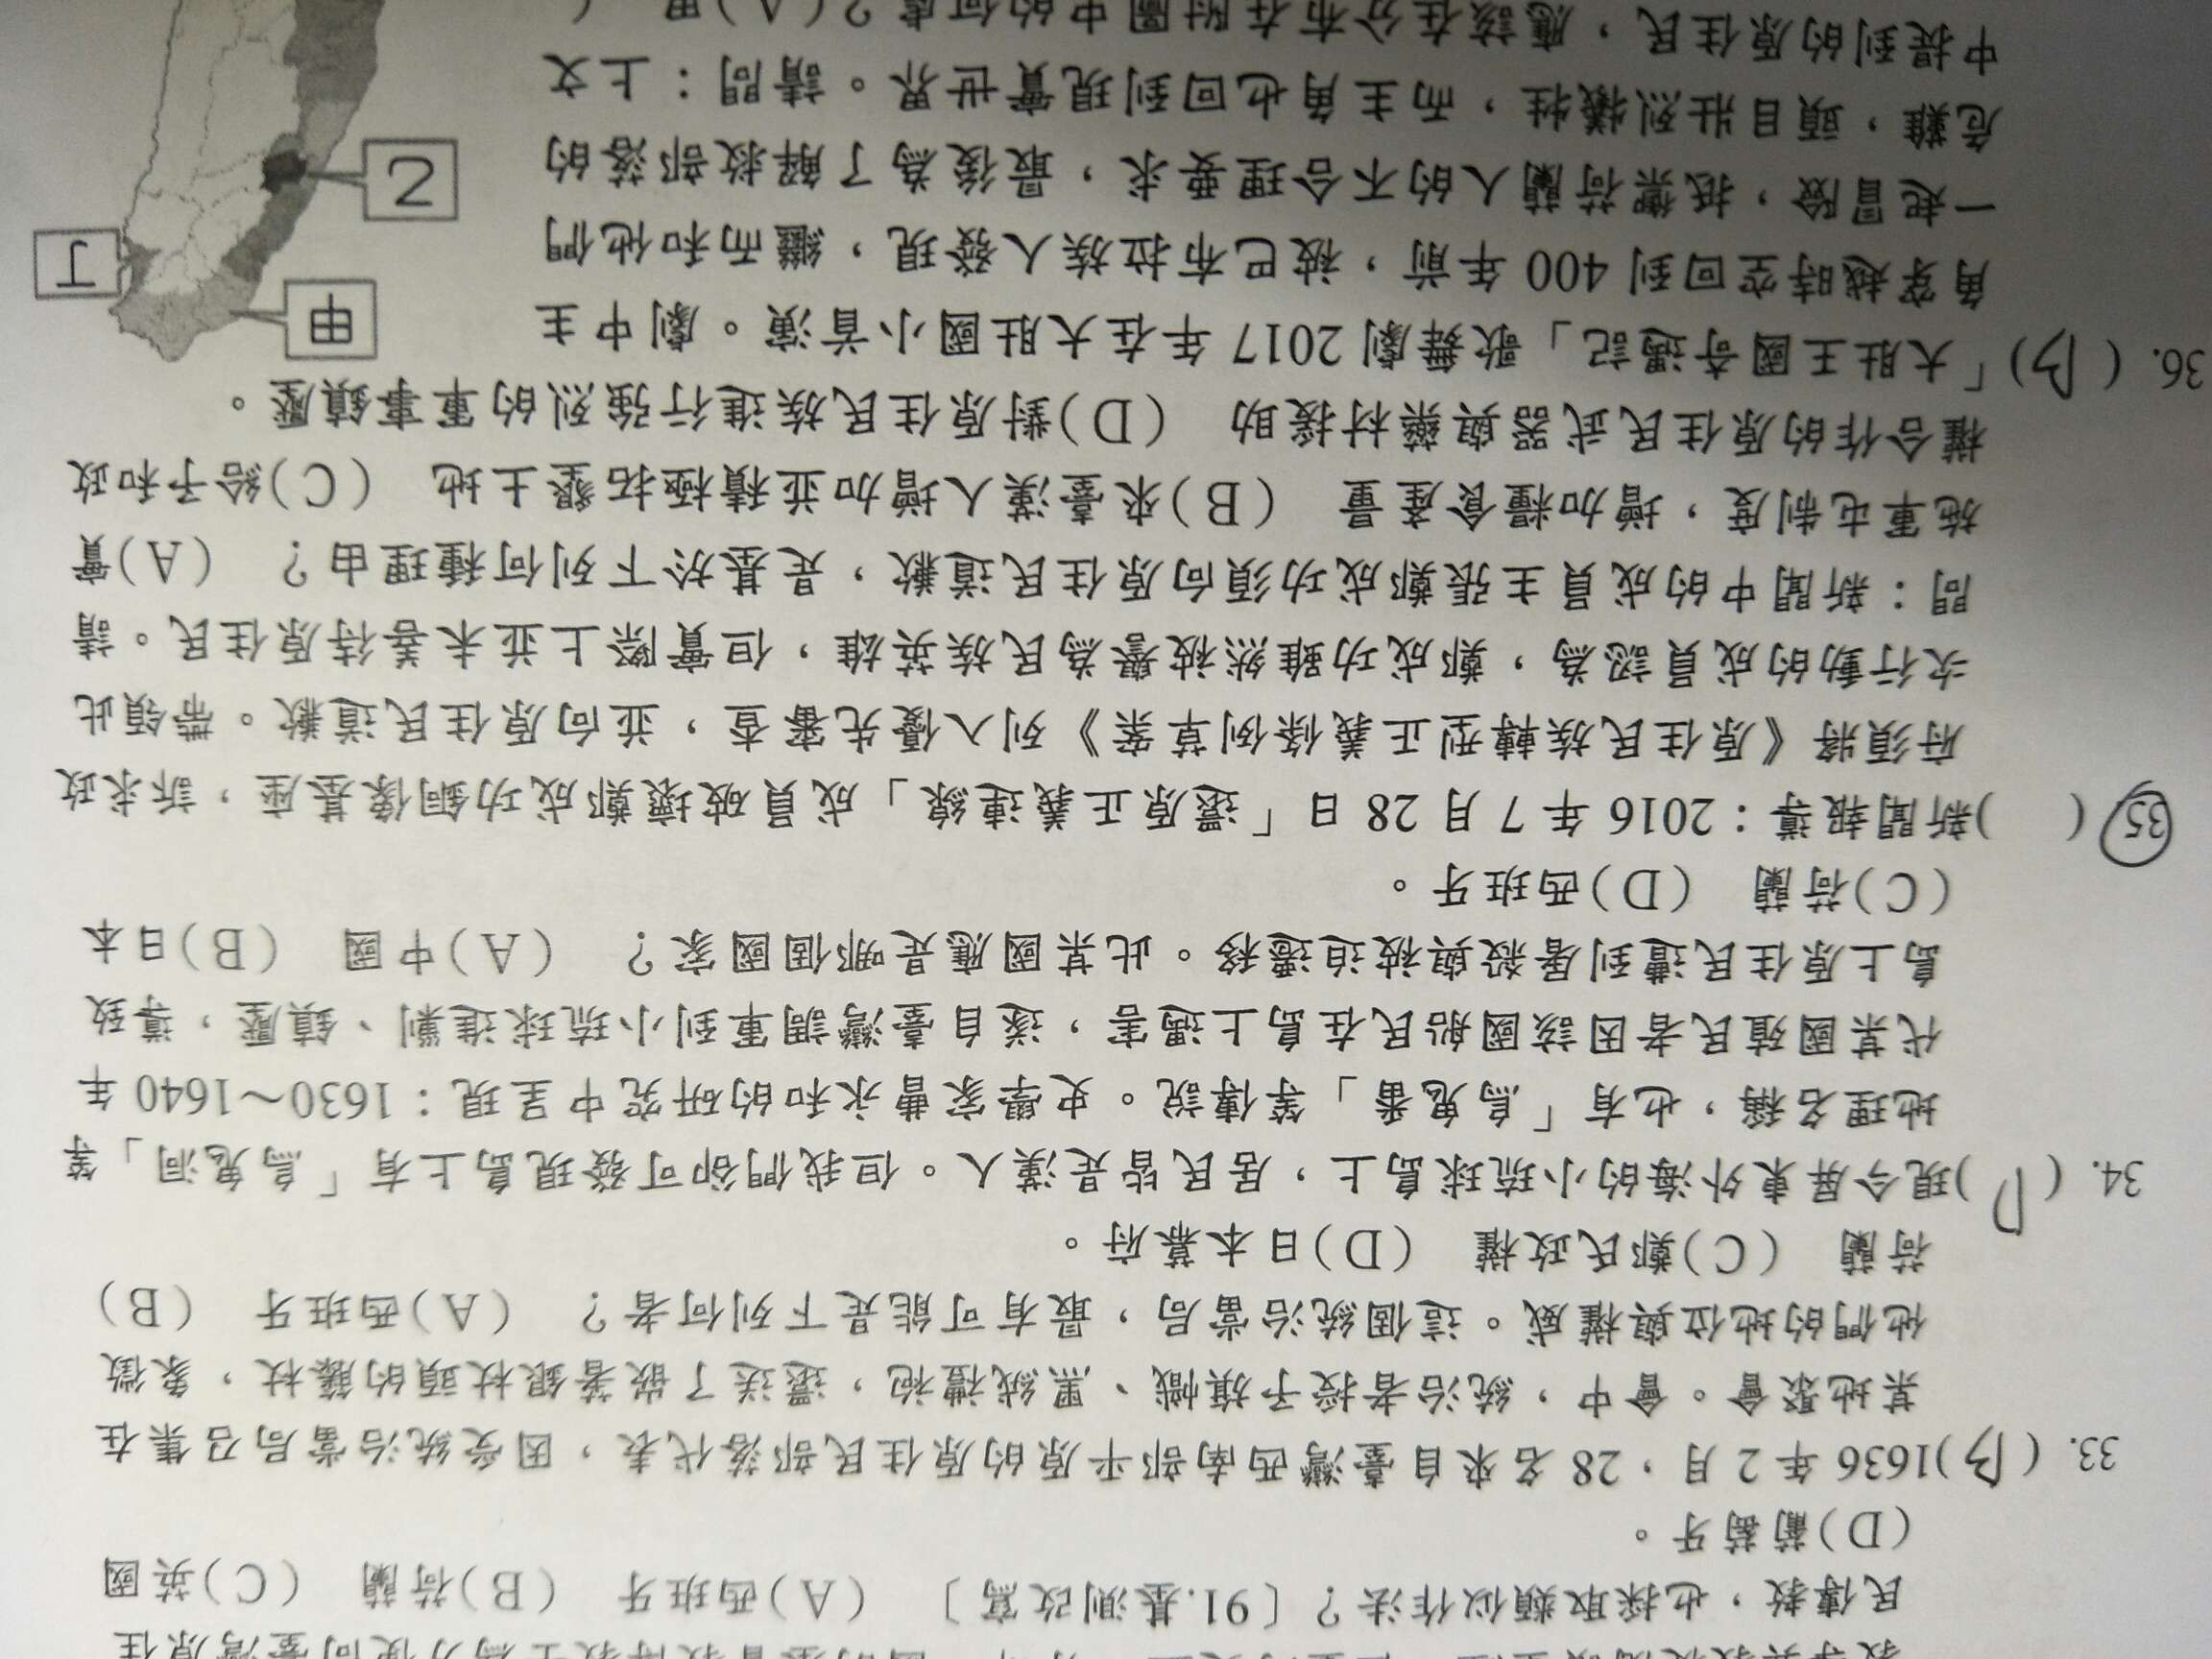 民傳教，也採取類似作法？〔91.基測改寫〕 (A)西班牙 (B)荷蘭 (C)英國
(D)葡萄牙。
33. (B)1636 年 2 月，28 名來自臺灣西南部平原的原住民部落代表，因受統治當局召集在
某地聚會。會中，統治者授予旗幟、黑絨禮袍，還送了嵌著銀杖頭的藤杖，象徵
他們的地位與權威。這個統治當局，最有可能是下列何者？ (A)西班牙 (B)
荷蘭 (C)鄭氏政權 (D)日本幕府。
34. (D)現今屏東外海的小琉球島上，居民皆是漢人。但我們卻可發現島上有「烏鬼洞」等
地理名稱，也有「烏鬼番」等傳說。史學家曹永和的研究中呈現：1630～1640 年
代某國殖民者因該國船民在島上遇害，遂自臺灣調軍到小琉球進剿、鎮壓，導致
島上原住民遭到屠殺與被迫遷移。此某國應是哪個國家？ (A)中國 (B)日本
(C)荷蘭 (D)西班牙。
35 ( )新聞報導：2016 年 7 月 28 日「還原正義連線」成員破壞鄭成功銅像基座，訴求政
府須將《原住民族轉型正義條例草案》列入優先審查，並向原住民道歉。帶領此
次行動的成員認為，鄭成功雖然被譽為民族英雄，但實際上並未善待原住民。請
問：新聞中的成員主張鄭成功須向原住民道歉，是基於下列何種理由？ (A)實
施軍屯制度，增加糧食產量 (B)來臺漢人增加並積極拓墾土地 (C)給予和政
權合作的原住民武器與藥材援助 (D)對原住民族進行強烈的軍事鎮壓。
36. (B)「大肚王國奇遇記」歌舞劇 2017 年在大肚國小首演。劇中主
角穿越時空回到 400 年前，被巴布拉族人發現，繼而和他們
一起冒險，抵禦荷蘭人的不合理要求，最後為了解救部落的
危難，頭目壯烈犧牲，而主角也回到現實世界。請問：上文
中提到的原住民，應該在分布在附圖中的何處？(A)甲 (
甲
丁
乙